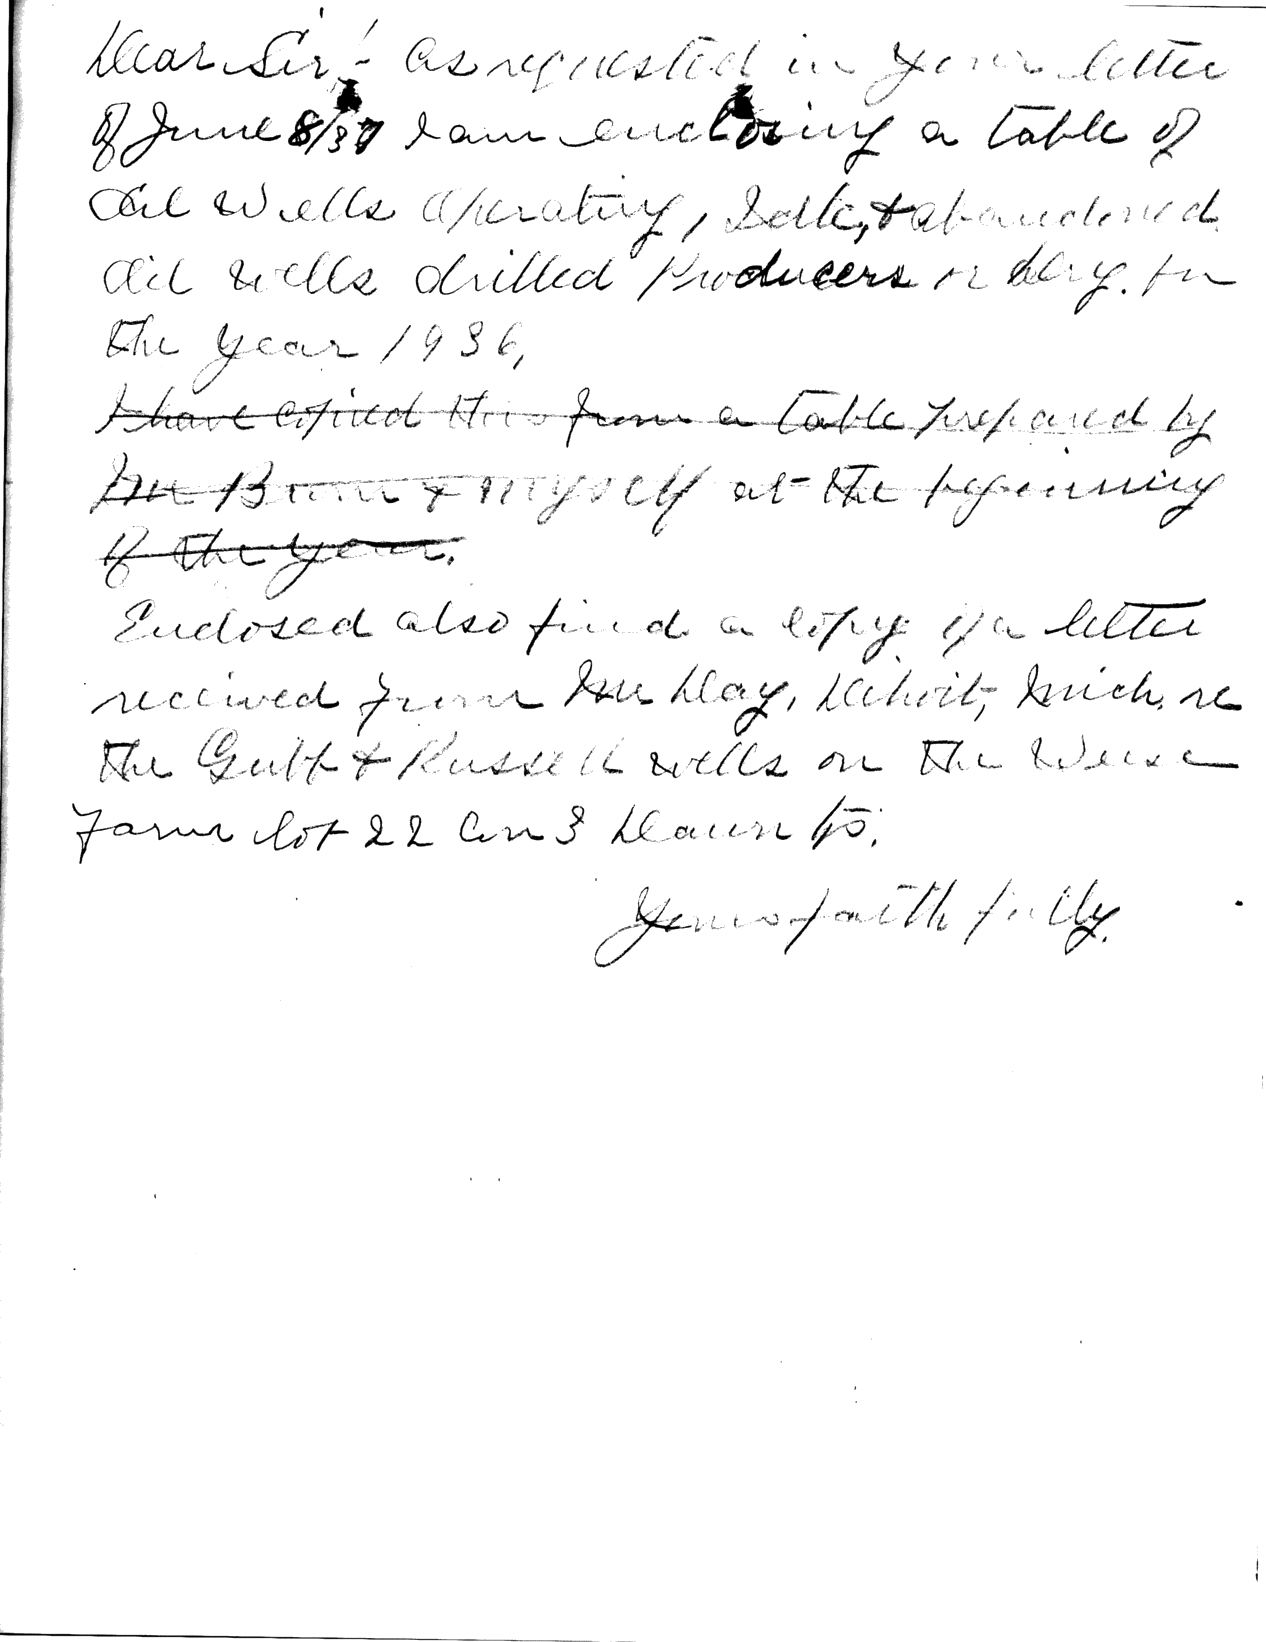 Dear Sir:- As requested in your letter
of June 8/37 I am enclosing a table of
Oil Wells Operating, Idle, & abandoned
Oil wells drilled Producers or dry. for
the year 1936,
I have copied this from a table prepared by
Mr & myself at the beginning
of the year.
Enclosed also find a copy of a letter
received from Mr Day, Detroit, Mich. re
the & Russell wells on the
Farm lot 22 Con 3 Dawn Tp.
Yours faithfully.